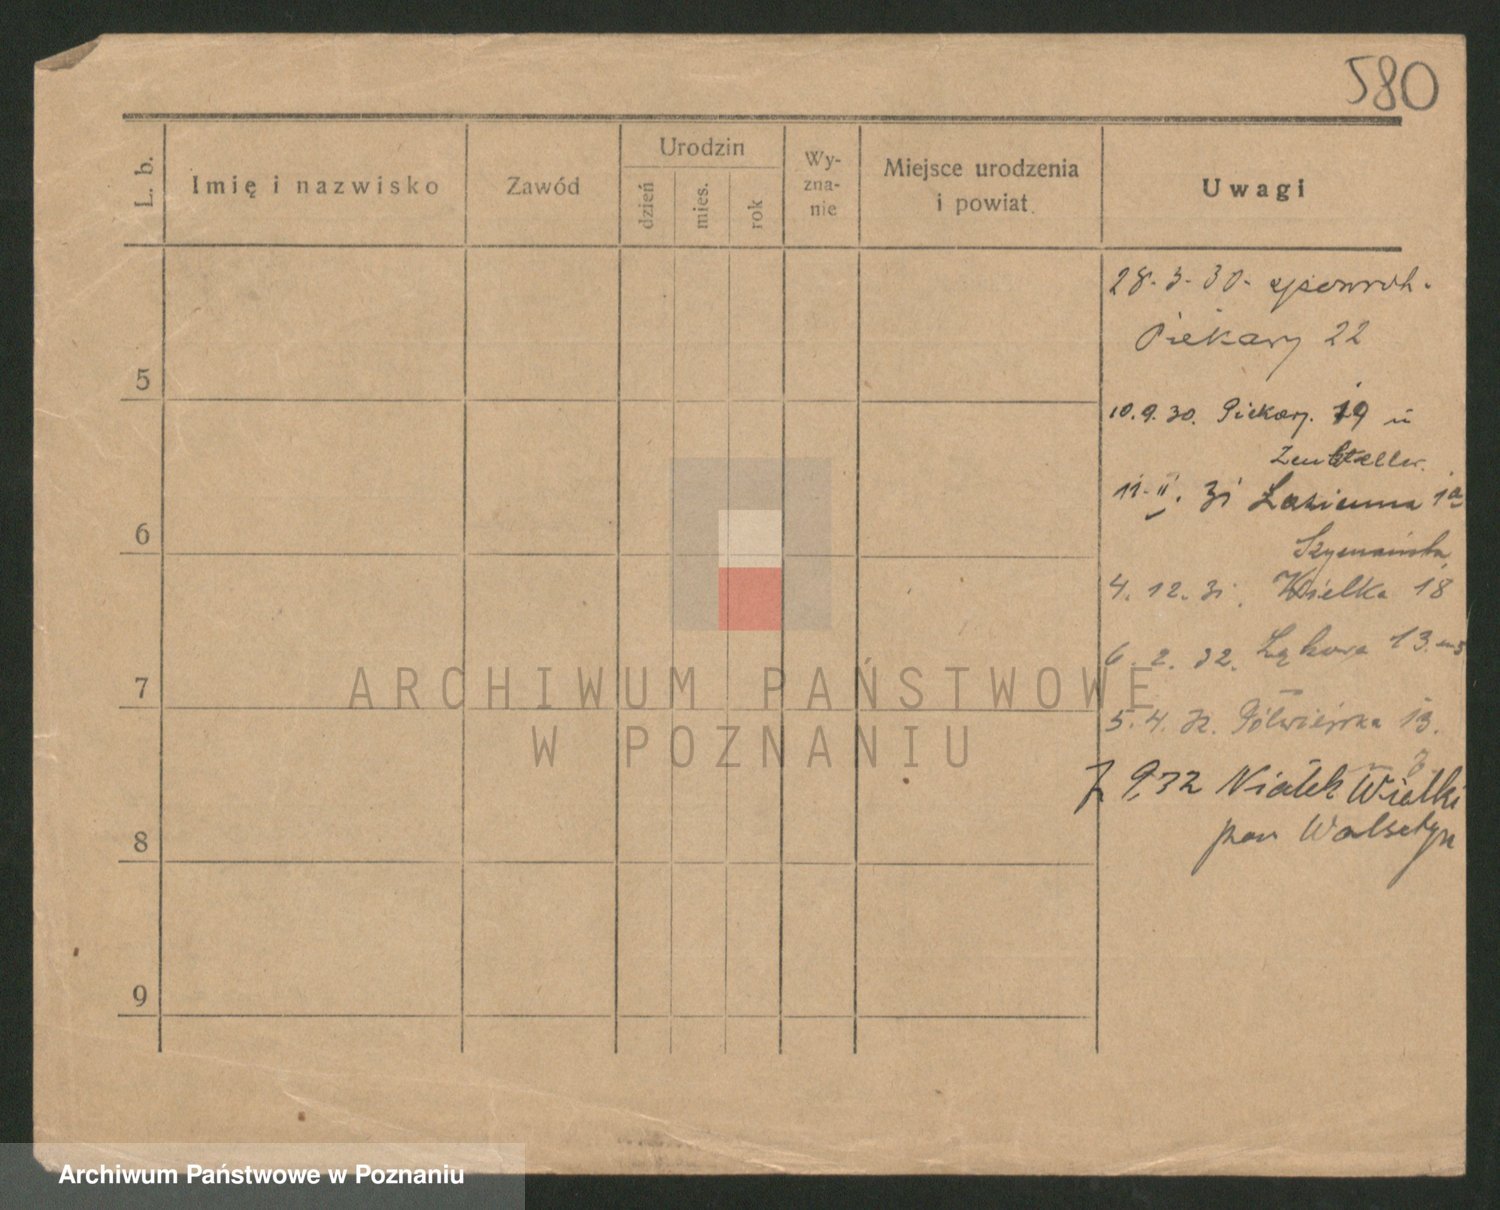 580
L. b.
Imię i nazwisko
Zawód
Urodzin
dzień
mies.
rok
Wy-
zna-
nie
Miejsce urodzenia
i powiat
Uwagi
28. 3. 30.
Piekary 22
5
10. 9. 30. Piekary. 19 u
Zeuktteller.
11. II. 31 Łazienna 1a
6
Szymańska
4. 12. 31. Wielka 18
6. 2. 32. Łąkowa 13.
7
5. 4. 32. Półwiejska 13.
7 9.32 Niałek Wielki
pow Wolsztyn
8
9
ARCHIWUM PAŃSTWOWE
W POZNANIU
Archiwum Państwowe w Poznaniu